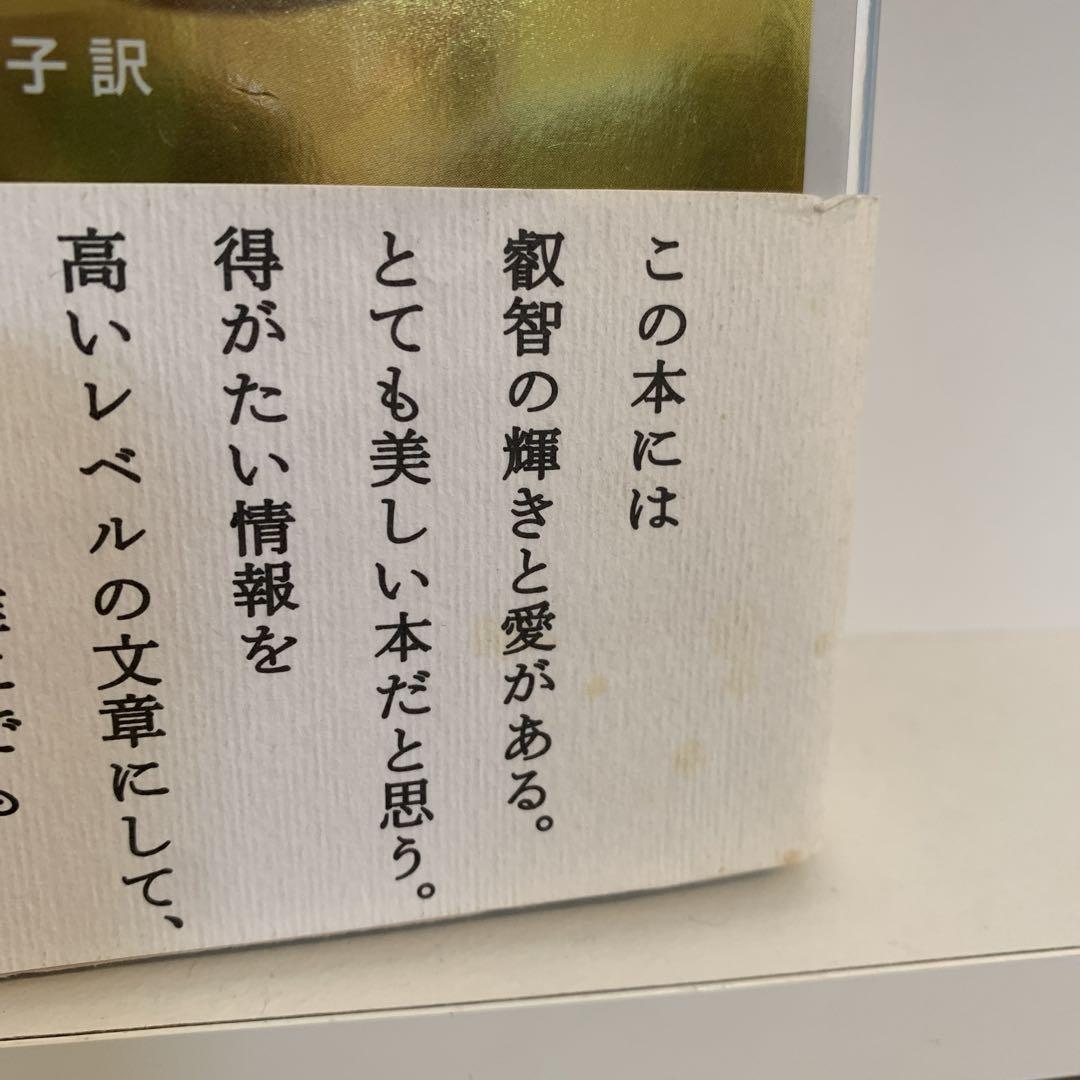 子訳
この本には
叡智の輝きと愛がある。
とても美しい本だと思う。
得がたい情報を
高いレベルの文章にして、